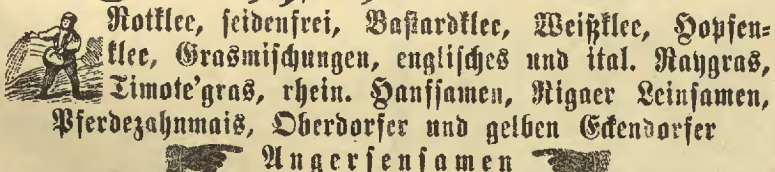 Rotklee, seidenfrei, Bastardklee, Weißklee, Hopfen-
klee, Grasmischungen, englisches und ital. Raygras,
Timote'gras, rhein. Hanfsamen, Rigaer Leinsamen,
Pferdezahnmais, Oberdorfer und gelben Eckendorfer
Angersensamen